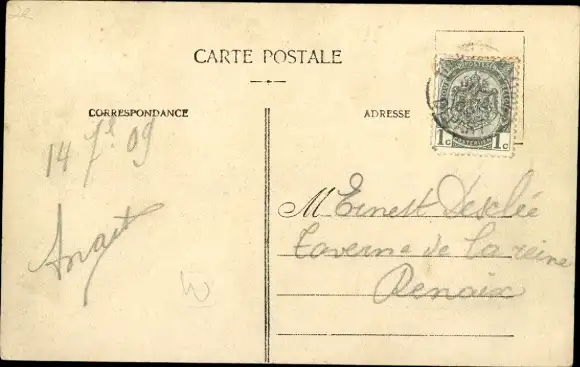 CARTE POSTALE
CORRESPONDANCE
ADRESSE
1c 1c
14 7 09
M Ernest Desclée
Taverne de la reine
Renaix